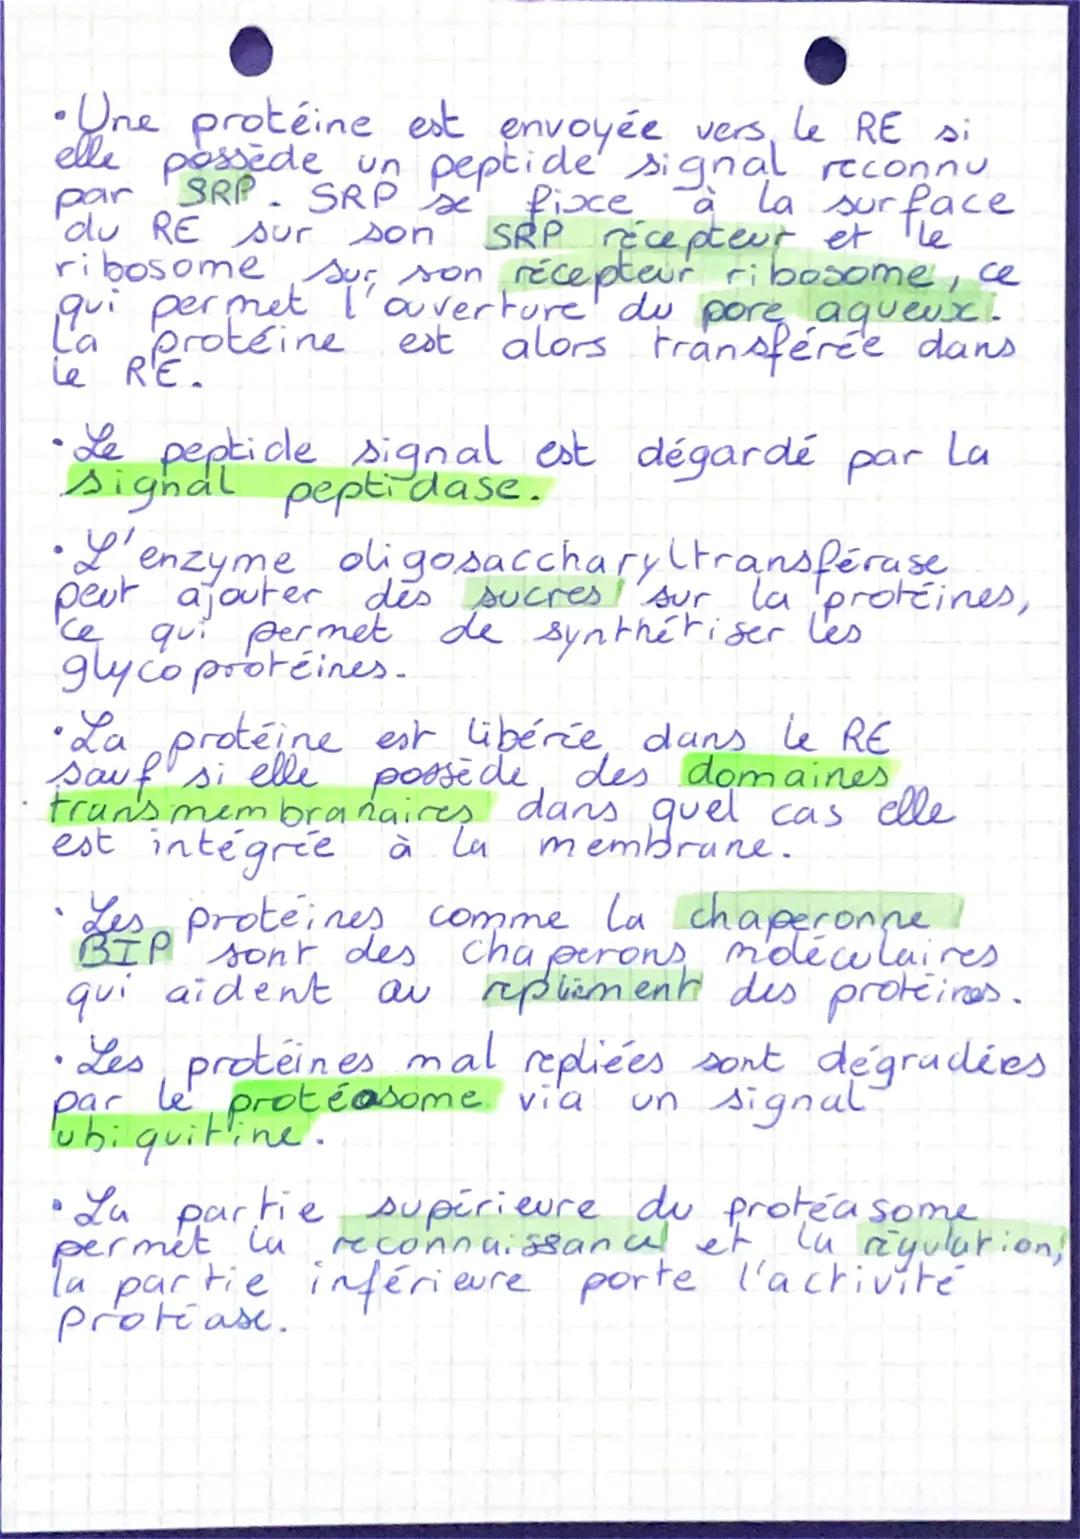 • Une protéine est envoyée vers le RE si
elle possède un peptide signal reconnu
par SRP. SRP se fixce à la surface
du RE sur son SRP récepteur et le
ribosome sur son récepteur ribosome, ce
qui permet l'ouverture du pore aqueux.
La protéine est alors transférée dans
le RE.
• Le peptide signal est dégardé par la
signal peptidase.
• L'enzyme oligosaccharyltransférase
peut ajouter des sucres sur la protéines,
ce qui permet de synthétiser les
glycoprotéines.
• La protéine est libérée dans le RE
sauf si elle possède des domaines
transmembranaires dans quel cas elle
est intégrée à la membrane.
• Les protéines comme la chaperonne
BIP sont des chaperons moléculaires
qui aident au repliement des protéines.
• Les protéines mal repliées sont dégradées
par le protéasome via un signal
ubiquitine.
• La partie supérieure du protéasome
permet la reconnaissance et la régulation,
la partie inférieure porte l'activité
protéase.